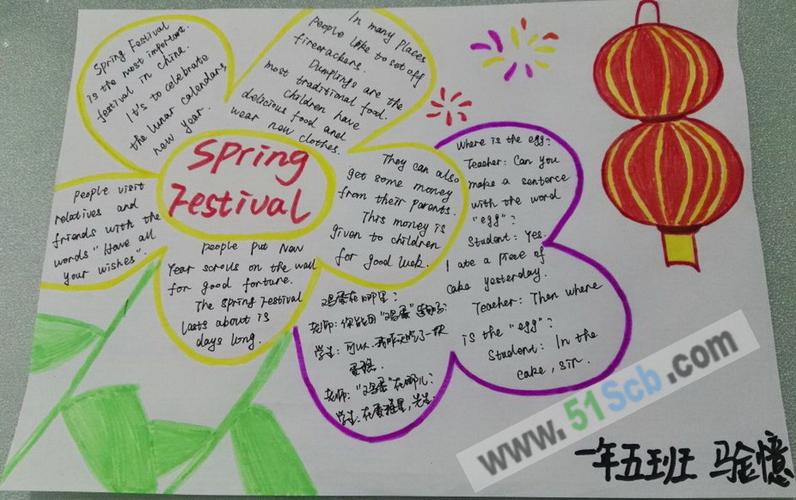 Spring Festival
is the most important
festival in China.
It's to celebrate
the lunar calendars
new year.
In many places
people like to set off
firecrackers.
Dumplings are the
most traditional food.
Children have
delicious food and
wear new clothes.
Spring
Festival
They can also
get some money
from their parents.
This money is
given to children
for good luck.
people visit
relatives and
friends with the
words "Have all
your wishes".
people put New
Year scrolls on the wall
for good fortune.
The Spring Festival
lasts about 15
days long.
Where is the egg?
Teacher: Can you
make a sentence
with the word
"egg"?
Student: Yes.
I ate a piece of
cake yesterday.
Teacher: Then where
is the "egg"?
Student: In the
cake, sir.
鸡蛋在哪里?
老师:你能用"鸡蛋"造句吗?
学生:可以.我昨天吃了一块
蛋糕.
老师:"鸡蛋"在哪儿?
学生:在蛋糕里,先生.
www.51Scb.com
一年五班 马金憶